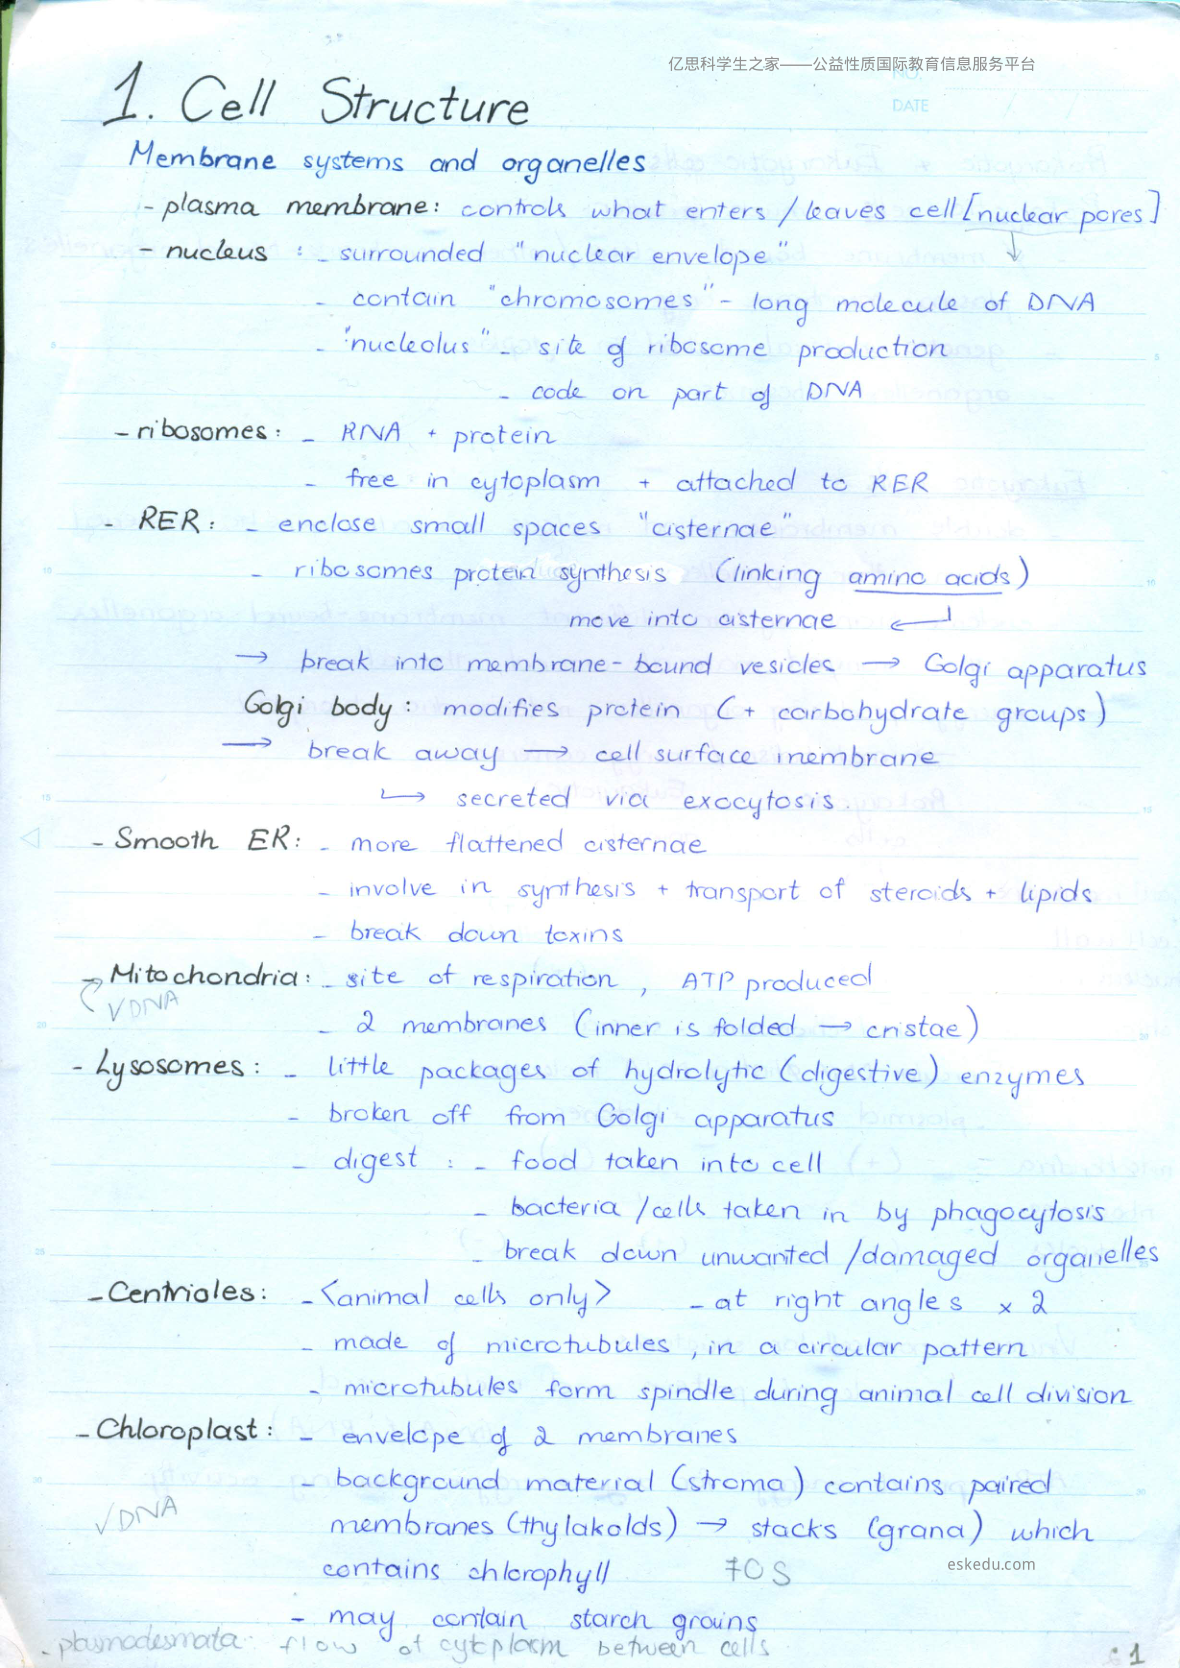 亿思科学生之家——公益性质国际教育信息服务平台
NO.
DATE / /
1. Cell Structure
Membrane systems and organelles
- plasma membrane: controls what enters / leaves cell [nuclear pores]
↓
- nucleus : - surrounded "nuclear envelope"
- contain "chromosomes" - long molecule of DNA
- "nucleolus" - site of ribosome production
- code on part of DNA
- ribosomes: - RNA + protein
- free in cytoplasm + attached to RER
- RER: - enclose small spaces "cisternae"
- ribosomes protein synthesis (linking amino acids)
move into cisternae ←
→ break into membrane-bound vesicles → Golgi apparatus
Golgi body: modifies protein (+ carbohydrate groups)
→ break away → cell surface membrane
↳ secreted via exocytosis.
- Smooth ER: - more flattened cisternae
- involve in synthesis + transport of steroids + lipids
- break down toxins
Mitochondria: - site of respiration, ATP produced
√ DNA
- 2 membranes (inner is folded → cristae)
- Lysosomes: - little packages of hydrolytic (digestive) enzymes
- broken off from Golgi apparatus
- digest : - food taken into cell
- bacteria / cells taken in by phagocytosis
- break down unwanted / damaged organelles
- Centrioles: - <animal cells only> - at right angles x 2
- made of microtubules, in a circular pattern
- microtubules form spindle during animal cell division
- Chloroplast: - envelope of 2 membranes
- background material (stroma) contains paired
√ DNA
membranes (thylakoids) → stacks (grana) which
eskedu.com
contains chlorophyll 70S
- may contain starch grains
- plasmodesmata: flow of cytoplasm between cells
1